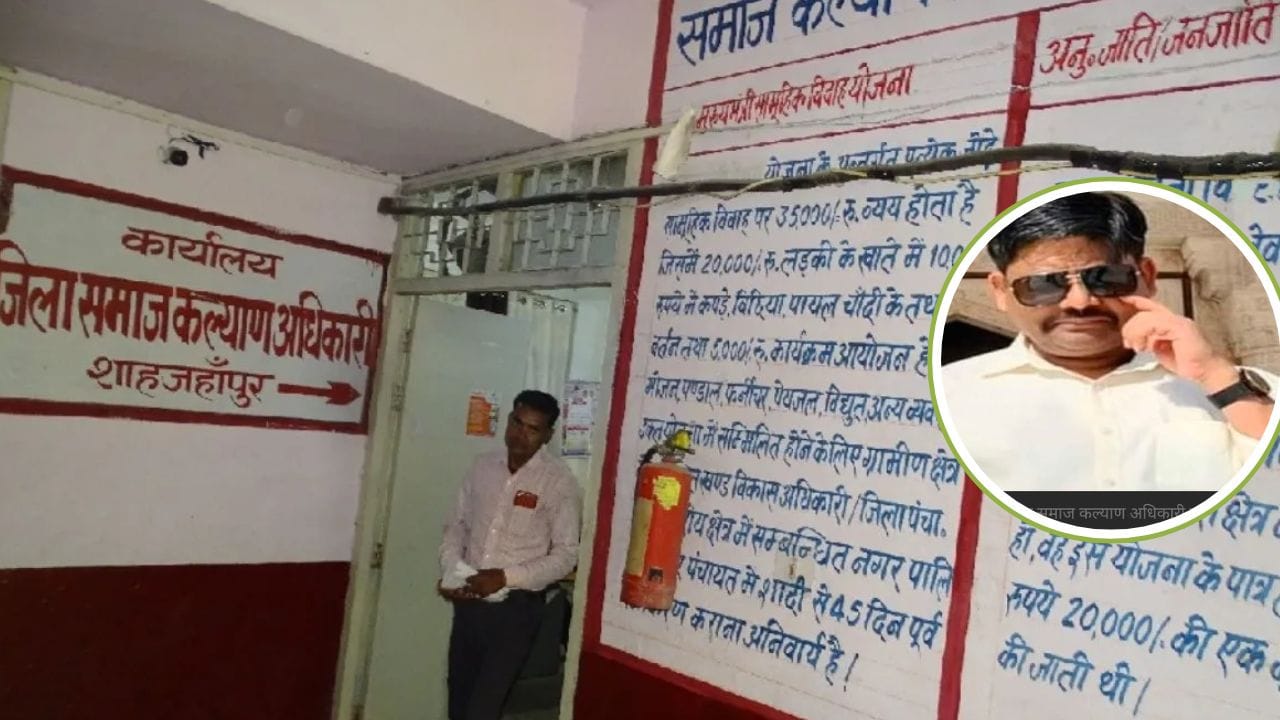 कार्यालय
जिला समाज कल्याण अधिकारी
शाहजहाँपुर
समाज
अनु॰जाति/जनजाति
मुख्यमंत्री सामूहिक विवाह योजना
योजना के अन्तर्गत प्रत्येक
सामूहिक विवाह पर 35000/-रु. व्यय होता है
जिसमें 20,000/-रु. लड़की के खाते में
रुपये में कपड़े, बिछिया, पायल चाँदी के
बर्तन तथा 5,000/-रु. कार्यक्रम आयोजन
भोजन, पण्डाल, फर्नीचर, पेयजल, विद्युत, अन्य
में सम्मिलित होने के लिए ग्रामीण क्षेत्र
खण्ड विकास अधिकारी / जिला पंचा.
क्षेत्र में सम्बन्धित नगर पालि
पंचायत में शादी से 45 दिन पूर्व
कराना अनिवार्य है।
समाज कल्याण अधिकारी
क्षेत्र
हो, वह इस योजना के पात्र
रुपये 20,000/- की एक
की जाती थी।